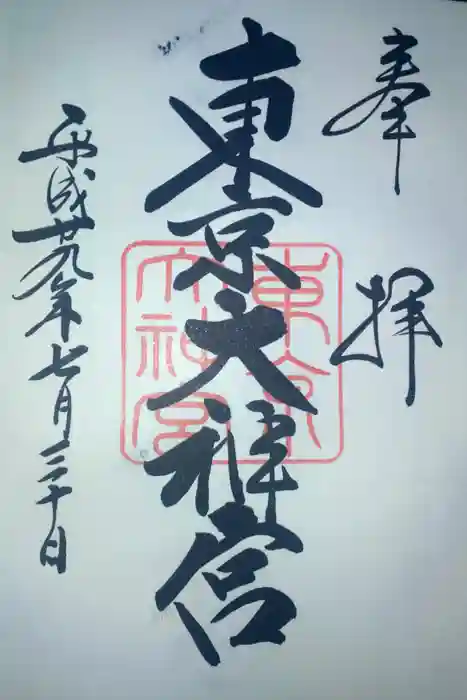 奉拝
東京大神宮
東京大神宮
平成廿九年七月三十日